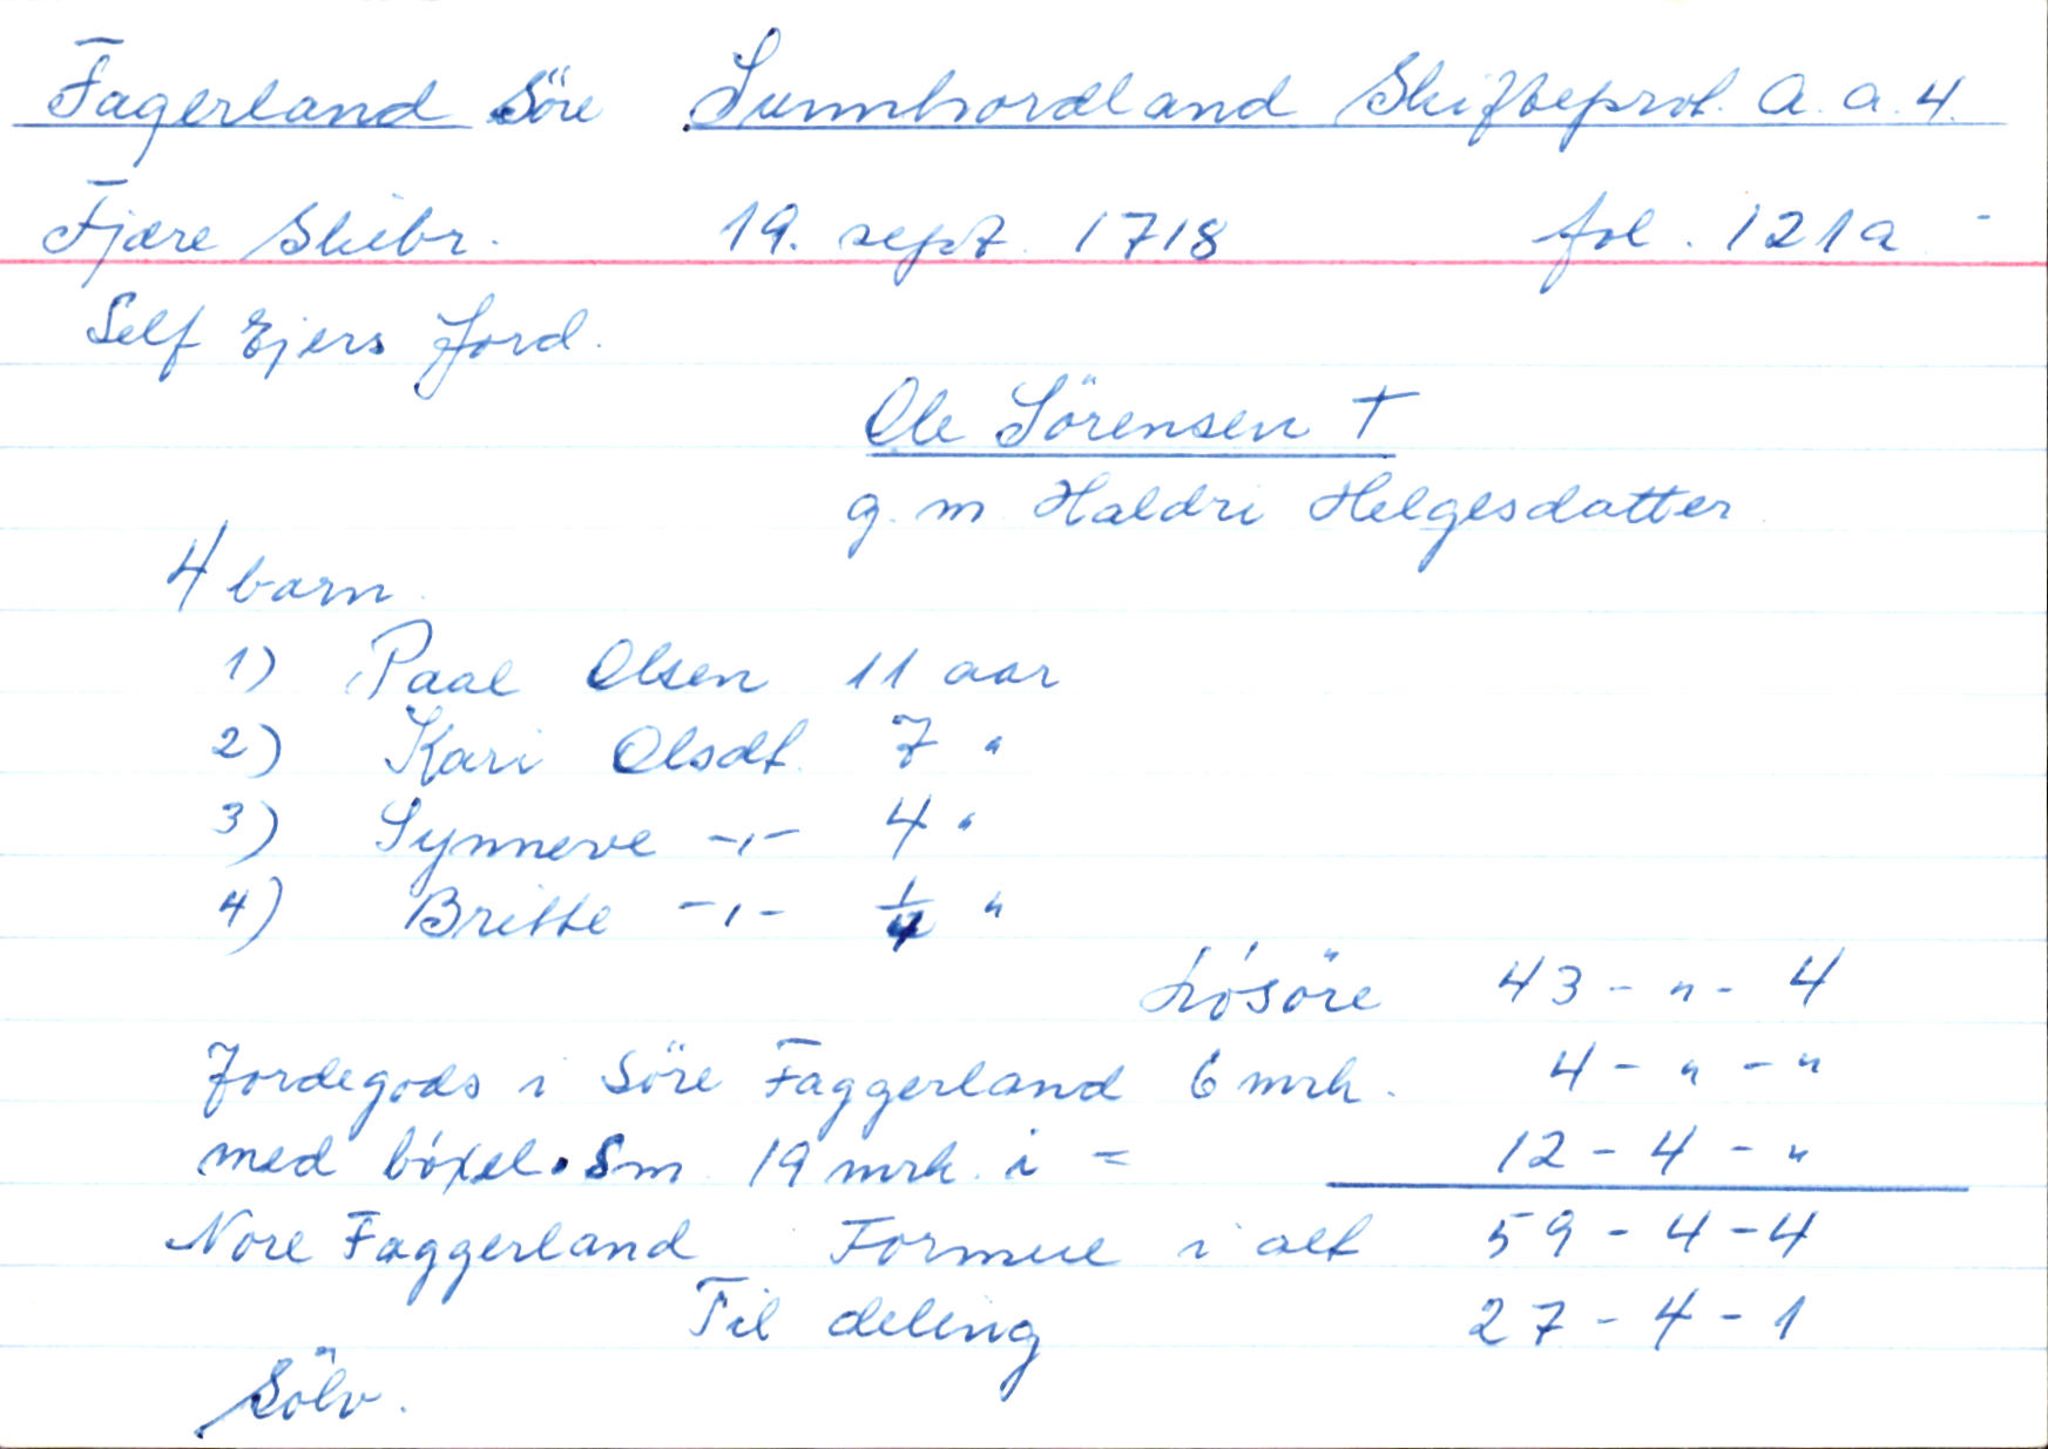 Fagerland Söre Sunnhordland Skifteprot. A. a. 4.
Fjære Skibr. 19. sept. 1718 fol. 121a -
Self Ejers Jord.
Ole Sörensen †
g. m. Haldri Helgesdatter
4 barn.
1) Paal Olsen 11 aar
2) Kari Olsdt. 7 "
3) Synneve -"- 4 "
4) Britte -"- 1/4 "
Lösöre 43 - " - 4
Jordegods i Söre Faggerland 6 mrk. 4 - " - "
med böxel. Sm. 19 mrk. i = 12 - 4 - "
Nore Faggerland Formue i alt 59 - 4 - 4
Til deling 27 - 4 - 1
Sölv.